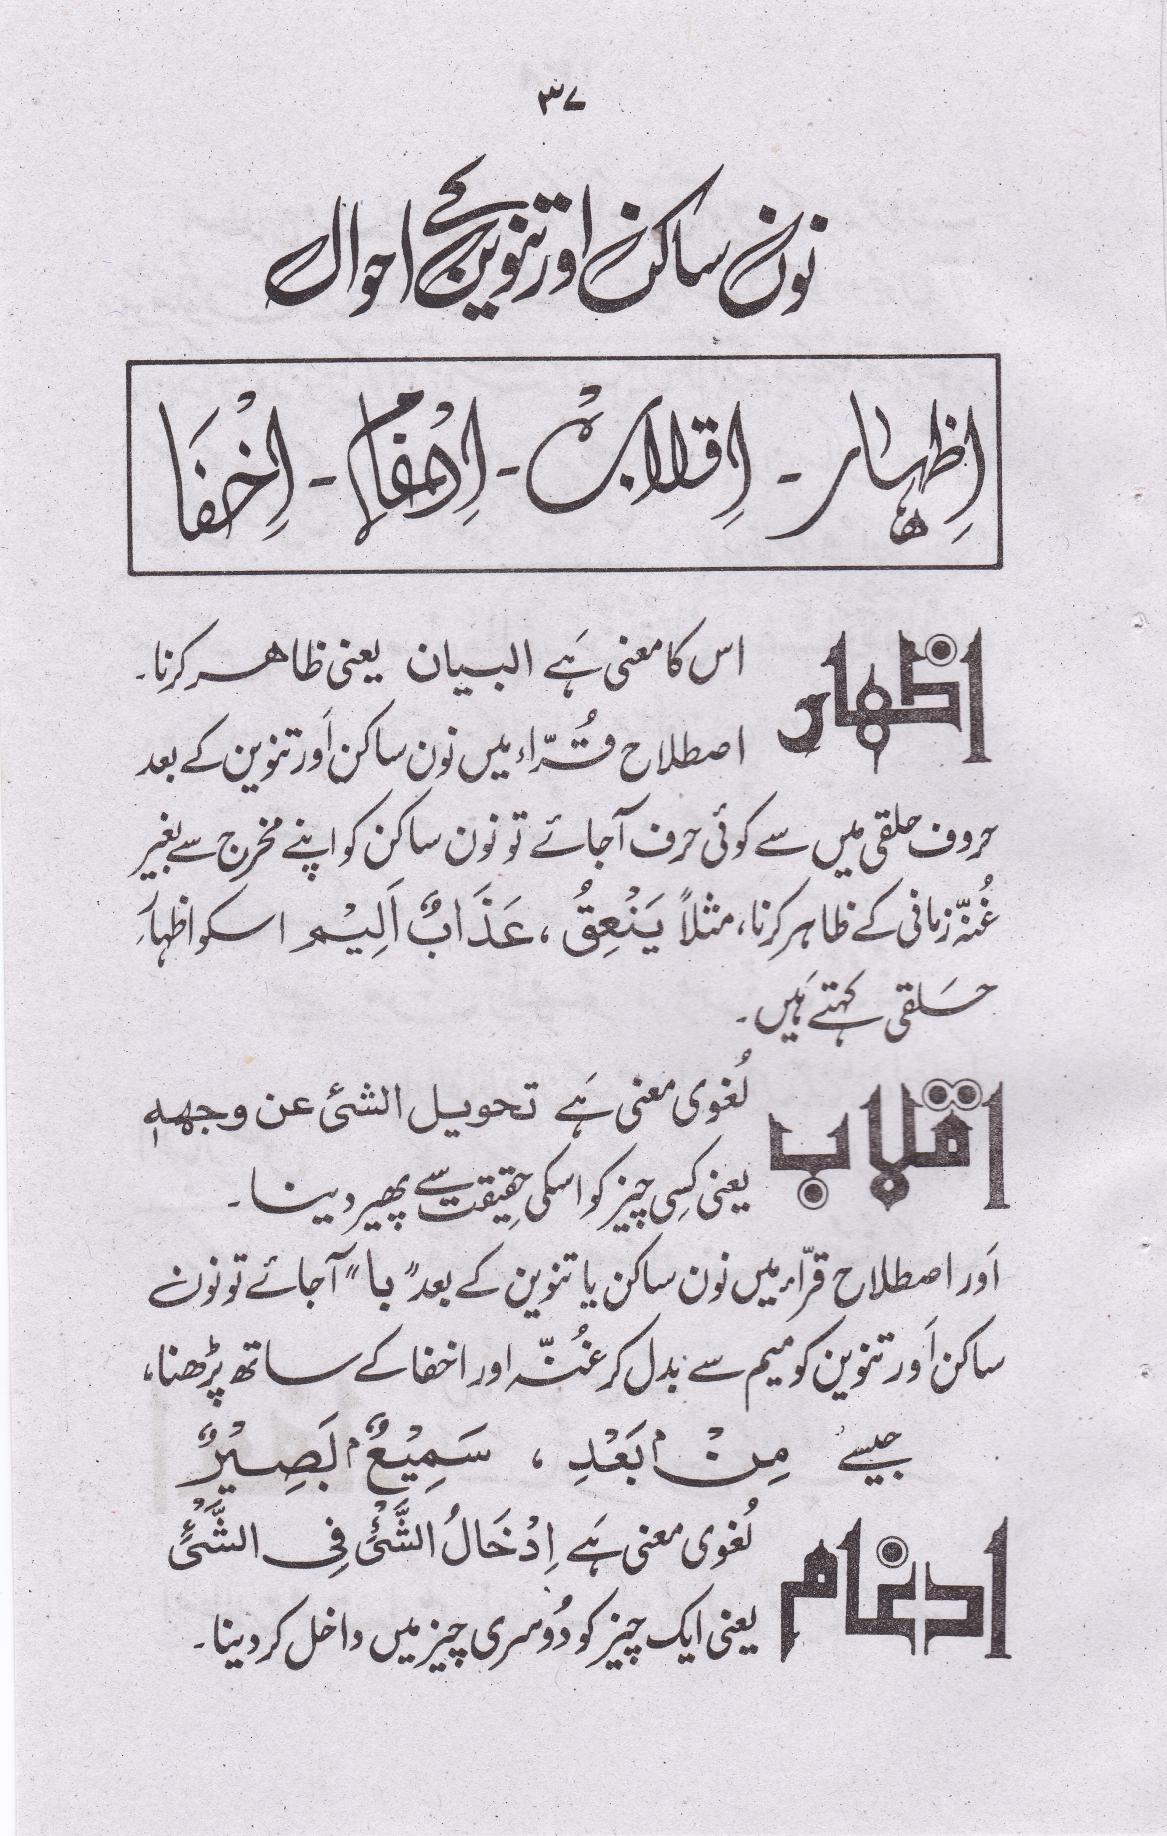 ۳۷
نون ساکن اور تنوین کے احوال
اِظہار - اِقلاب - اِدغام - اِخفَا
اظہار
اس کا معنی ہَے البیان یعنی ظاہر کرنا۔
اصطلاح قُرّاء میں نون ساکن اَور تنوین کے بعد
حروف حلقی میں سے کوئی حرف آجائے تو نون ساکن کو اپنے مخرج سے بغیر
غُنّہ زمانی کے ظاہر کرنا، مثلاً یَنْعِقُ ، عَذَابٌ اَلِیْم اسکو اظہارِ
حَلقی کہتے ہَیں۔
اقلاب
لُغوی معنی ہَے تحویل الشئ عن وجھہٖ
یعنی کِسی چیز کو اسکی حِقیقت سے پھیر دینا۔
اَور اصطلاح قرّاء میں نون ساکن یا تنوین کے بعد "با" آجائے تو نون
ساکن اَور تنوین کو میم سے بدل کر غُنّہ اور اخفا کے ساتھ پڑھنا،
جیسے مِنْۢ بَعْدِ ، سَمِیْعٌۢ بَصِیْرٌ
ادغام
لُغوی معنی ہَے اِدْخَالُ الشَّیْ فِی الشَّیْ
یعنی ایک چیز کو دُوسری چیز میں داخل کر دینا۔